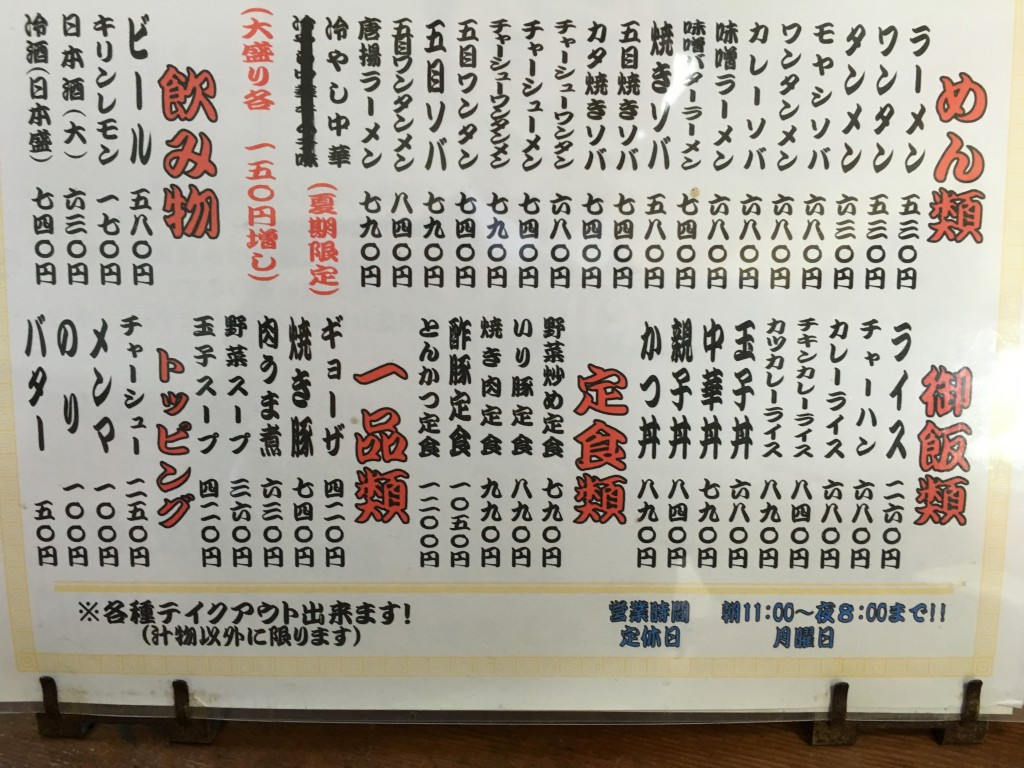 めん類
ラーメン 五三〇円
ワンタン 五三〇円
タンメン 六三〇円
モヤシソバ 六八〇円
ワンタンメン 六八〇円
カレーソバ 六八〇円
味噌ラーメン 六八〇円
味噌バターラーメン 七四〇円
焼きソバ 五八〇円
五目焼きソバ 七四〇円
カタ焼きソバ 七四〇円
チャーシューワンタン 六八〇円
チャーシューメン 七四〇円
チャーシューワンタンメン 七九〇円
五目ワンタン 七四〇円
五目ソバ 七九〇円
五目ワンタンメン 八四〇円
唐揚ラーメン 七九〇円
冷やし中華 (夏期限定)
(大盛り各 一五〇円増し)
飲み物
ビール 五八〇円
キリンレモン 一七〇円
日本酒(大) 六三〇円
冷酒(日本盛) 七四〇円
御飯類
ライス 二六〇円
チャーハン 六八〇円
カレーライス 六八〇円
チキンカレーライス 八四〇円
カツカレーライス 八九〇円
玉子丼 六八〇円
中華丼 七九〇円
親子丼 八四〇円
かつ丼 八九〇円
定食類
野菜炒め定食 七九〇円
いり豚定食 八九〇円
焼き肉定食 九九〇円
酢豚定食 一〇五〇円
とんかつ定食 一二〇〇円
一品類
ギョーザ 四二〇円
焼き豚 七四〇円
肉うま煮 六三〇円
野菜スープ 三六〇円
玉子スープ 四二〇円
トッピング
チャーシュー 二五〇円
メンマ 一〇〇円
のり 一〇〇円
バター 五〇円
※各種テイクアウト出来ます!
(汁物以外に限ります)
営業時間 朝11:00〜夜8:00まで!!
定休日 月曜日